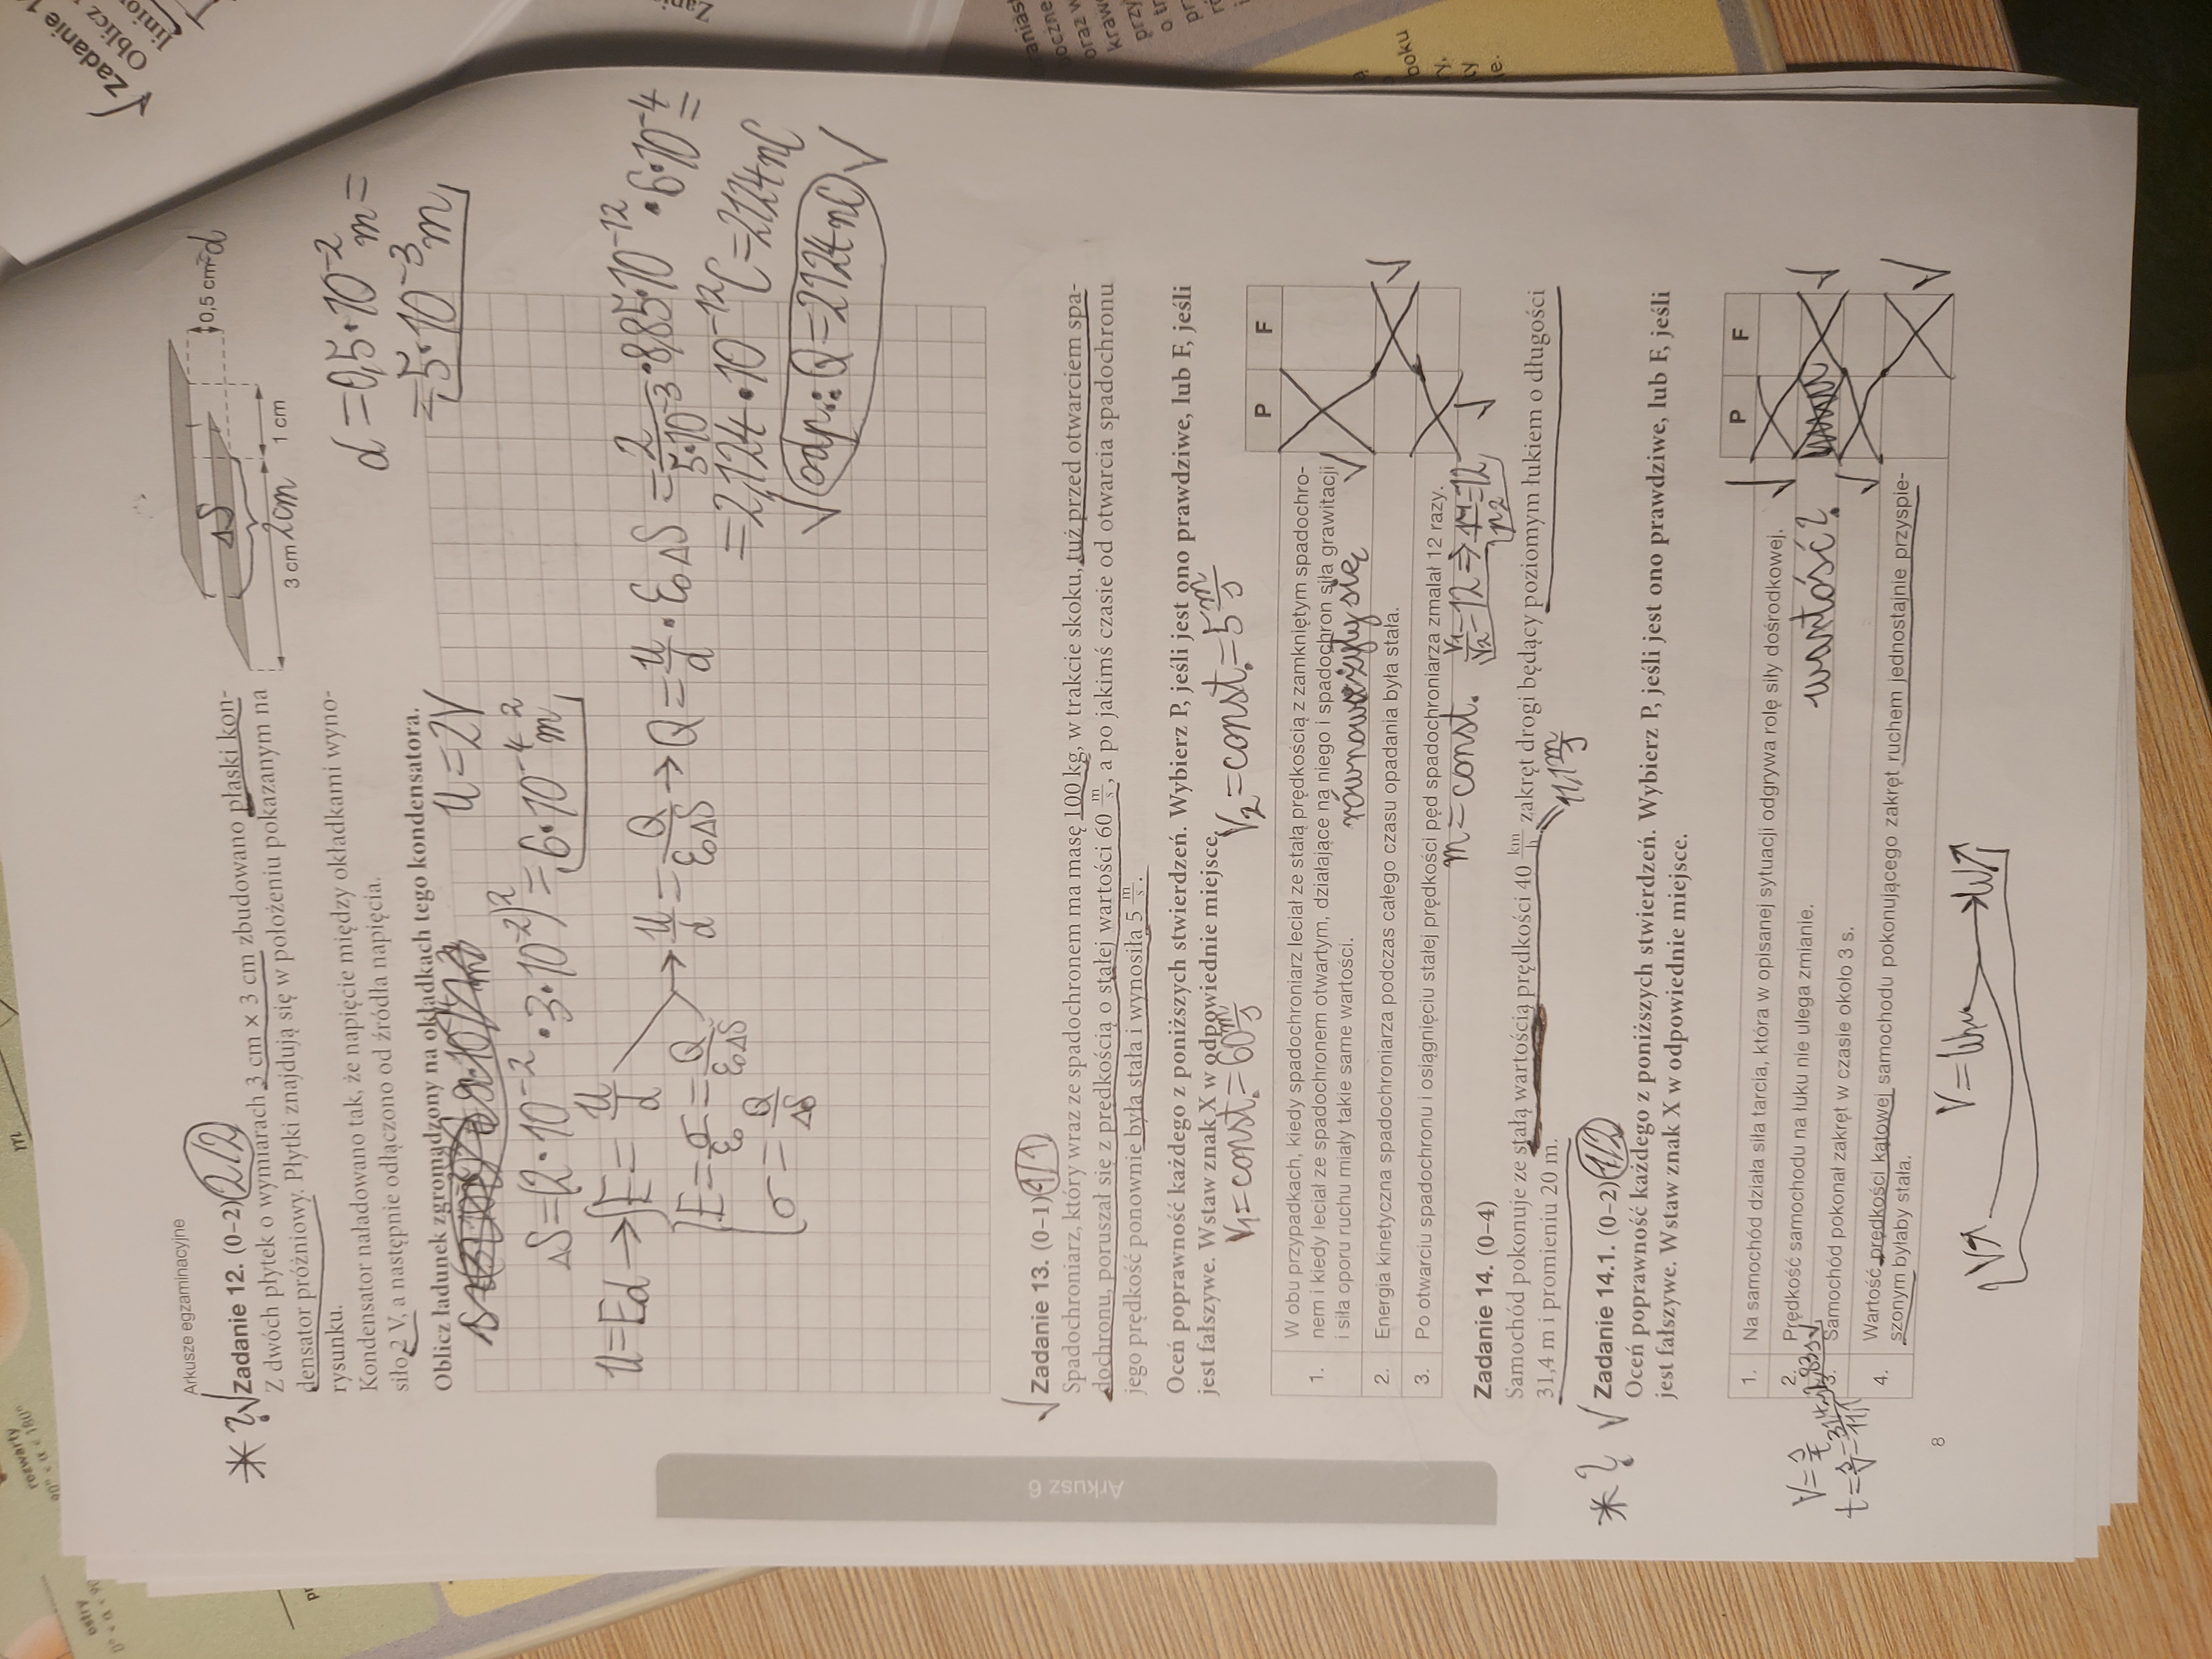 Arkusze egzaminacyjne
* ? √ Zadanie 12. (0–2) 2/2
Z dwóch płytek o wymiarach 3 cm × 3 cm zbudowano płaski kon-
densator próżniowy. Płytki znajdują się w położeniu pokazanym na
rysunku.
Kondensator naładowano tak, że napięcie między okładkami wyno-
siło 2 V, a następnie odłączono od źródła napięcia.
Oblicz ładunek zgromadzony na okładkach tego kondensatora.
ΔS
3 cm 2cm
1 cm
0,5 cm=d
d=0,5·10⁻² m=
=5·10⁻³ m
U=2V
ΔS=(2·10⁻²·3·10⁻²)=6·10⁻⁴ m²
U=Ed → E=U/d
E=σ/ε₀=Q/ε₀ΔS
σ=Q/ΔS
→ U/d=Q/ε₀ΔS → Q=U/d·ε₀ΔS=2/5·10⁻³·8,85·10⁻¹²·6·10⁻⁴=
=2,124·10⁻¹² C=2,124 nC
√ odp.: Q=2,124 nC √
√ Zadanie 13. (0–1) 1/1
Spadochroniarz, który wraz ze spadochronem ma masę 100 kg, w trakcie skoku, tuż przed otwarciem spa-
dochronu, poruszał się z prędkością o stałej wartości 60 m/s, a po jakimś czasie od otwarcia spadochronu
jego prędkość ponownie była stała i wynosiła 5 m/s.
Oceń poprawność każdego z poniższych stwierdzeń. Wybierz P, jeśli jest ono prawdziwe, lub F, jeśli
jest fałszywe. Wstaw znak X w odpowiednie miejsce.
V₁=const.=60 m/s
V₂=const.=5 m/s
P F
1. W obu przypadkach, kiedy spadochroniarz leciał ze stałą prędkością z zamkniętym spadochro-
nem i kiedy leciał ze spadochronem otwartym, działające na niego i spadochron siła grawitacji
i siła oporu ruchu miały takie same wartości.
równoważyły się
2. Energia kinetyczna spadochroniarza podczas całego czasu opadania była stała.
3. Po otwarciu spadochronu i osiągnięciu stałej prędkości pęd spadochroniarza zmalał 12 razy.
m=const. V₁/V₂=12 ⇒ p₁/p₂=12
Zadanie 14. (0–4)
Samochód pokonuje ze stałą wartością prędkości 40 km/h zakręt drogi będący poziomym łukiem o długości
31,4 m i promieniu 20 m.
11,1 m/s
* ? √ Zadanie 14.1. (0–2) 1/2
Oceń poprawność każdego z poniższych stwierdzeń. Wybierz P, jeśli jest ono prawdziwe, lub F, jeśli
jest fałszywe. Wstaw znak X w odpowiednie miejsce.
P F
1. Na samochód działa siła tarcia, która w opisanej sytuacji odgrywa rolę siły dośrodkowej.
2. Prędkość samochodu na łuku nie ulega zmianie.
wartość?
3. Samochód pokonał zakręt w czasie około 3 s.
4. Wartość prędkości kątowej samochodu pokonującego zakręt ruchem jednostajnie przyspie-
szonym byłaby stała.
8
Arkusz 6